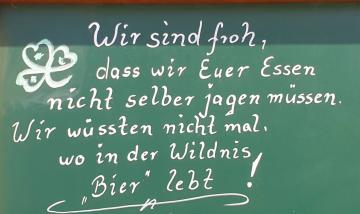 Wir sind froh,
dass wir Euer Essen
nicht selber jagen müssen.
Wir wüssten nicht mal,
wo in der Wildnis
„Bier" lebt!